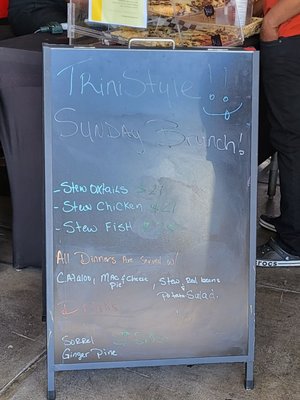 TriniStyle!!
Sunday Brunch!
- Stew Oxtails $29
- Stew Chicken $21
- Stew Fish
All Dinners Are Served w/
Calaloo, Mac & Cheese Pie, Stew Red beans & Potato Salad.
Drinks
Sorrel
Ginger Pine
crocs